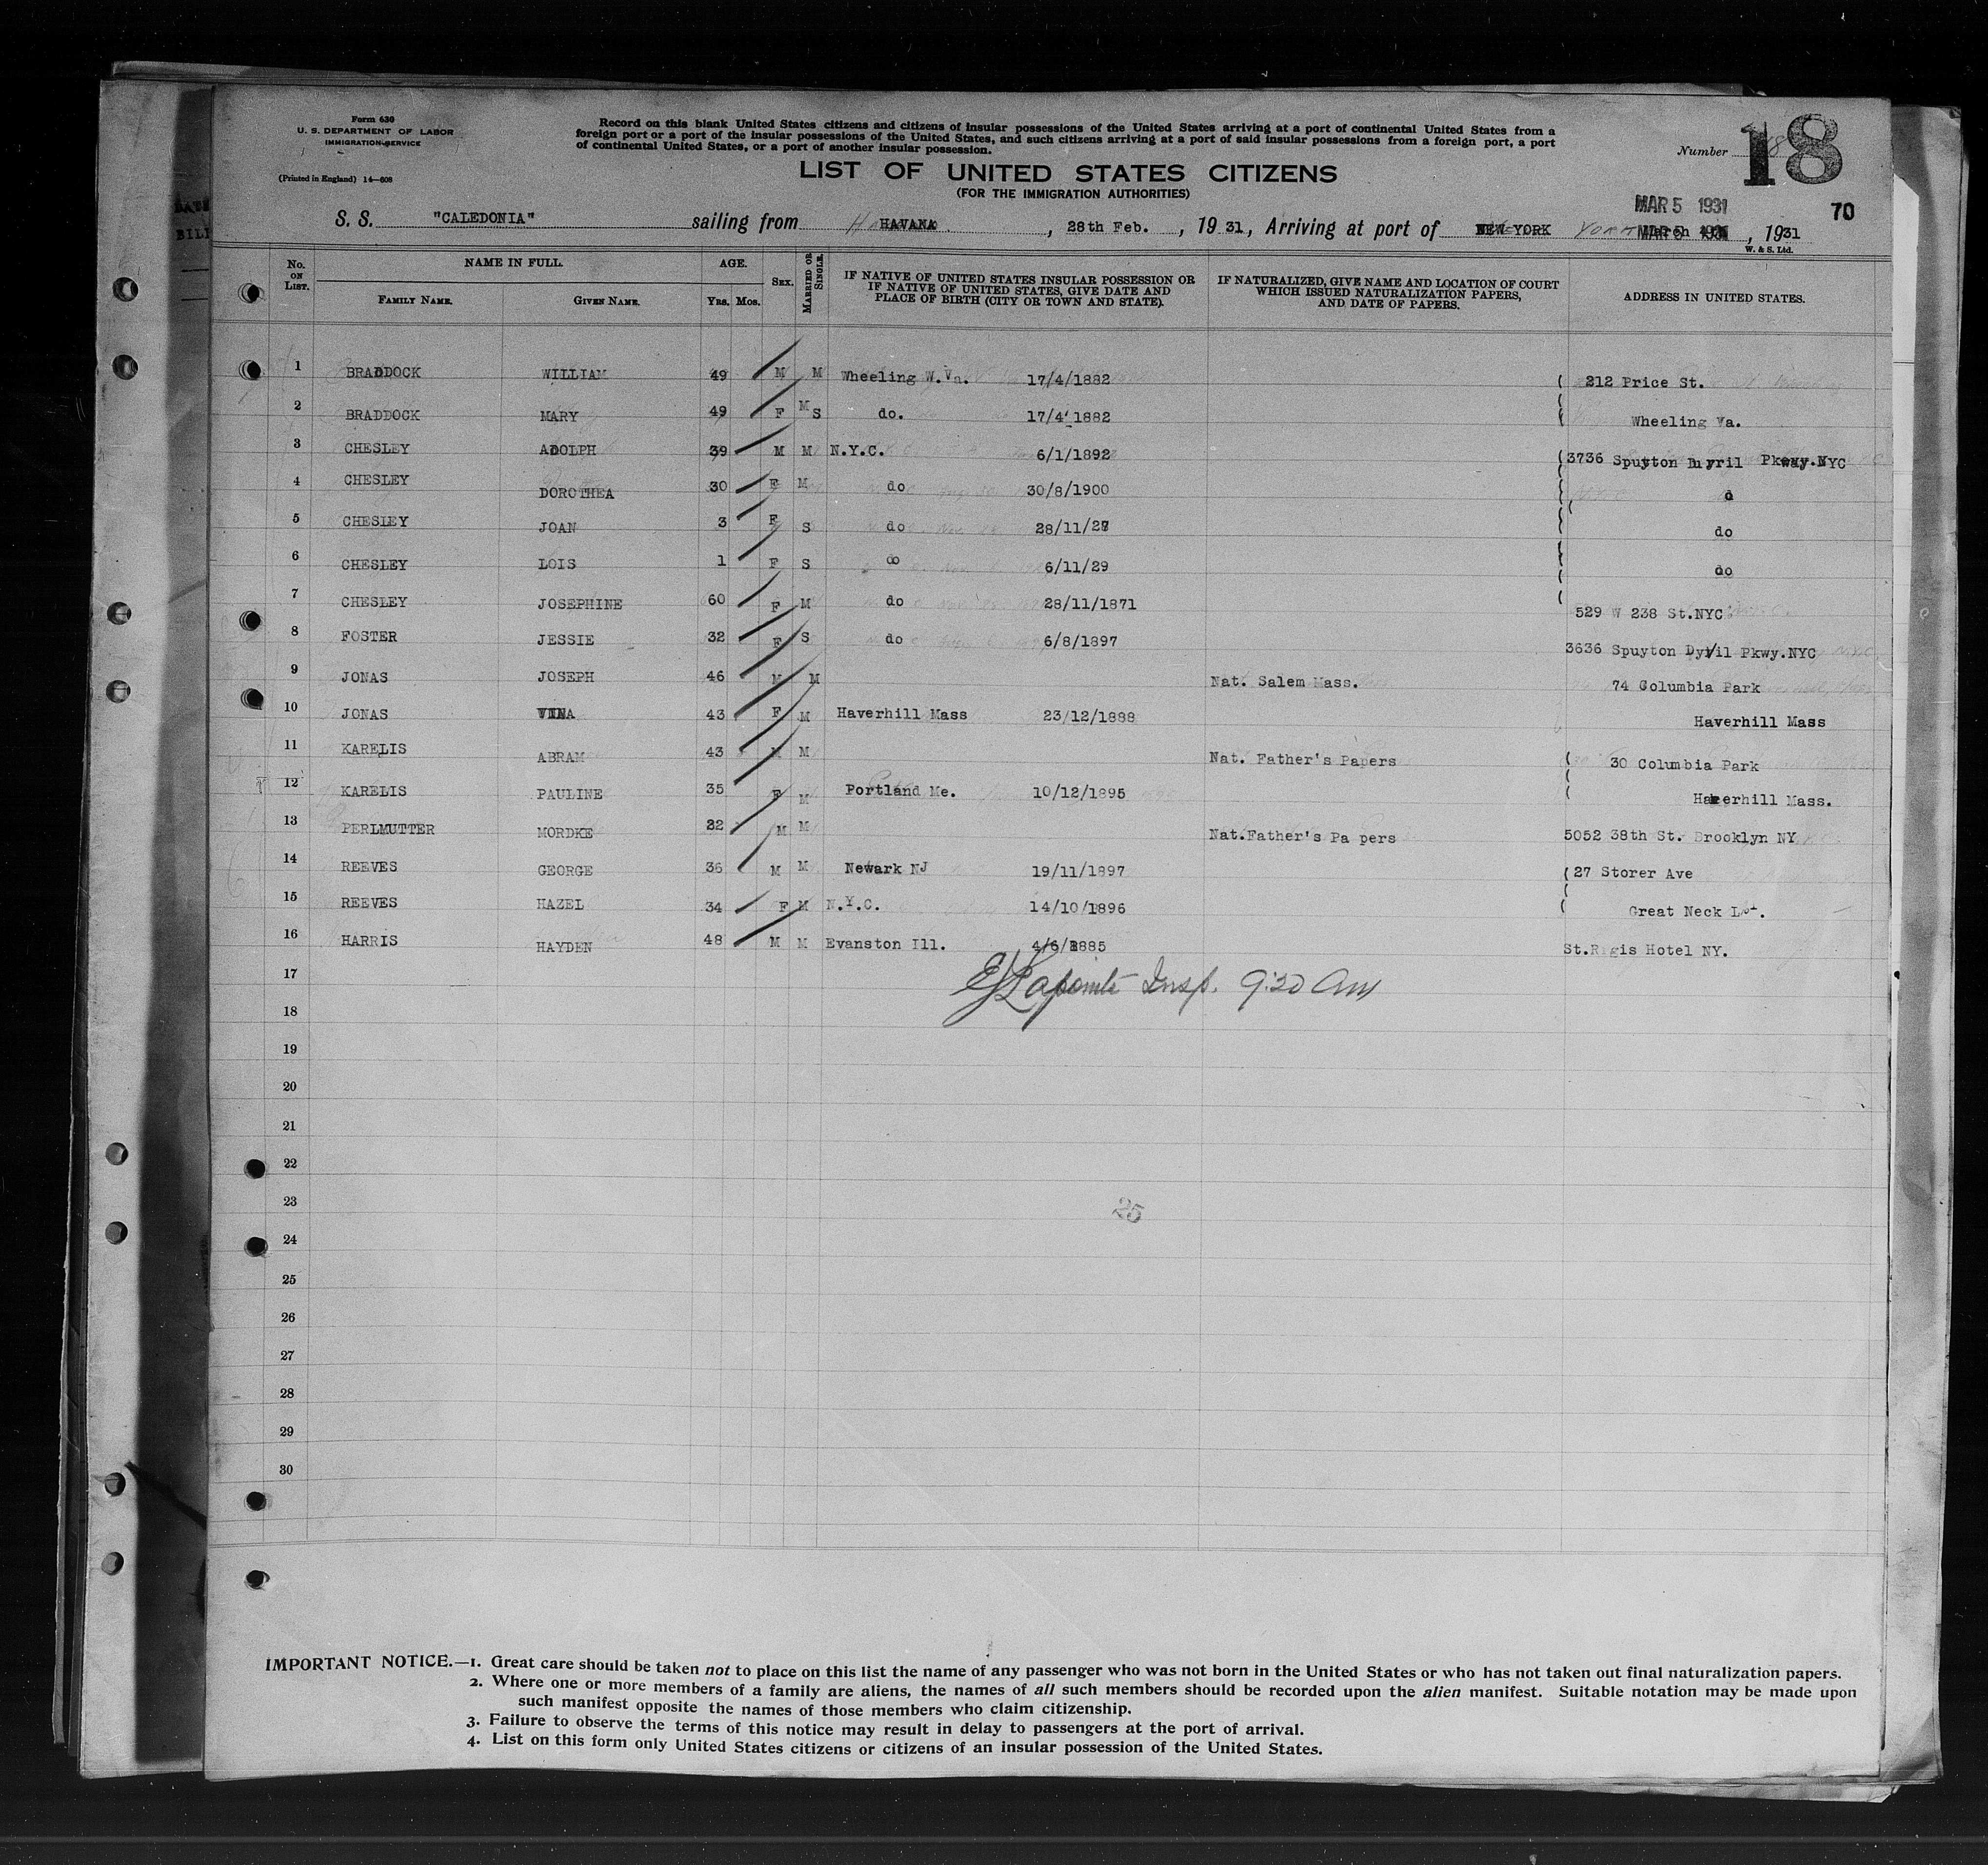 Form 630
U. S. DEPARTMENT OF LABOR
IMMIGRATION SERVICE
(Printed in England) 14—608
Record on this blank United States citizens and citizens of insular possessions of the United States arriving at a port of continental United States from a
foreign port or a port of the insular possessions of the United States, and such citizens arriving at a port of said insular possessions from a foreign port, a port
of continental United States, or a port of another insular possession.
LIST OF UNITED STATES CITIZENS
(FOR THE IMMIGRATION AUTHORITIES)
Number 18
MAR 5 1931
70
S. S. "CALEDONIA" sailing from HAVANA, 28th Feb., 1931, Arriving at port of NEW YORK March, 1931
W. & S. Ltd.
No. ON LIST. NAME IN FULL. FAMILY NAME. GIVEN NAME. AGE. YRS. MOS. SEX. MARRIED OR SINGLE. IF NATIVE OF UNITED STATES INSULAR POSSESSION OR IF NATIVE OF UNITED STATES, GIVE DATE AND PLACE OF BIRTH (CITY OR TOWN AND STATE). IF NATURALIZED, GIVE NAME AND LOCATION OF COURT WHICH ISSUED NATURALIZATION PAPERS, AND DATE OF PAPERS. ADDRESS IN UNITED STATES.
1 BRADDOCK WILLIAM 49 M M Wheeling W.Va. 17/4/1882 212 Price St.
2 BRADDOCK MARY 49 F M S do. 17/4/1882 Wheeling Va.
3 CHESLEY ADOLPH 39 M M N.Y.C. 6/1/1892 3736 Spuyton Pkway.NYC
4 CHESLEY DOROTHEA 30 F M do 30/8/1900 d
5 CHESLEY JOAN 3 F S do 28/11/27 do
6 CHESLEY LOIS 1 F S do 6/11/29 do
7 CHESLEY JOSEPHINE 60 F M do 28/11/1871 529 W 238 St.NYC
8 FOSTER JESSIE 32 F S do 6/8/1897 3636 Spuyton Dyvil Pkwy.NYC
9 JONAS JOSEPH 46 M M Nat. Salem Mass. 74 Columbia Park
10 JONAS 43 F M Haverhill Mass 23/12/1888 Haverhill Mass
11 KARELIS ABRAM 43 M M Nat. Father's Papers 30 Columbia Park
12 KARELIS PAULINE 35 F M Portland Me. 10/12/1895 Haverhill Mass.
13 PERLMUTTER MORDKE 32 M M Nat.Father's Pa pers 5052 38th St. Brooklyn NY
14 REEVES GEORGE 36 M M Newark NJ 19/11/1897 27 Storer Ave
15 REEVES HAZEL 34 F M N.Y.C. 14/10/1896 Great Neck
16 HARRIS HAYDEN 48 M M Evanston Ill. 4/6/1885 St.Regis Hotel NY.
17 EJ Lapointe Insp. 9:20 Am
18
19
20
21
22
23
25
24
25
26
27
28
29
30
IMPORTANT NOTICE.—1. Great care should be taken not to place on this list the name of any passenger who was not born in the United States or who has not taken out final naturalization papers.
2. Where one or more members of a family are aliens, the names of all such members should be recorded upon the alien manifest. Suitable notation may be made upon
such manifest opposite the names of those members who claim citizenship.
3. Failure to observe the terms of this notice may result in delay to passengers at the port of arrival.
4. List on this form only United States citizens or citizens of an insular possession of the United States.